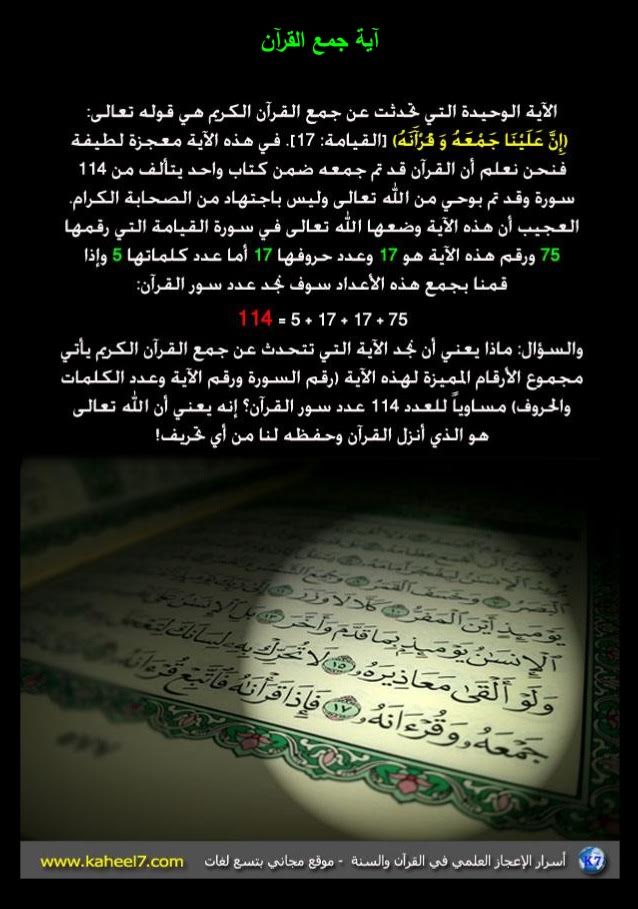 آية جمع القرآن
الآية الوحيدة التي تحدثت عن جمع القرآن الكريم هي قوله تعالى:
(إِنَّ عَلَيْنَا جَمْعَهُ وَ قُرْآَنَهُ) [القيامة: 17]. في هذه الآية معجزة لطيفة
فنحن نعلم أن القرآن قد تم جمعه ضمن كتاب واحد يتألف من 114
سورة وقد تم بوحي من الله تعالى وليس باجتهاد من الصحابة الكرام.
العجيب أن هذه الآية وضعها الله تعالى في سورة القيامة التي رقمها
75 ورقم هذه الآية هو 17 وعدد حروفها 17 أما عدد كلماتها 5 وإذا
قمنا بجمع هذه الأعداد سوف نجد عدد سور القرآن:
75 + 17 + 17 + 5 = 114
والسؤال: ماذا يعني أن نجد الآية التي تتحدث عن جمع القرآن الكريم يأتي
مجموع الأرقام المميزة لهذه الآية (رقم السورة ورقم الآية وعدد الكلمات
والحروف) مساوياً للعدد 114 عدد سور القرآن؟ إنه يعني أن الله تعالى
هو الذي أنزل القرآن وحفظه لنا من أي تحريف!
يَوْمَئِذٍ أَيْنَ الْمَفَرُّ ۝ كَلَّا لَا وَزَرَ
الْإِنسَٰنُ يَوْمَئِذٍ بِمَا قَدَّمَ وَأَخَّرَ ۝١٣ بَلِ الْإِنسَٰنُ
وَلَوْ أَلْقَىٰ مَعَاذِيرَهُۥ ۝١٥ لَا تُحَرِّكْ بِهِۦ لِسَانَكَ لِتَعْجَلَ
جَمْعَهُۥ وَقُرْءَانَهُۥ ۝١٧ فَإِذَا قَرَأْنَٰهُ فَاتَّبِعْ قُرْءَانَهُۥ
K7 أسرار الإعجاز العلمي في القرآن والسنة - موقع مجاني بتسع لغات www.kaheel7.com